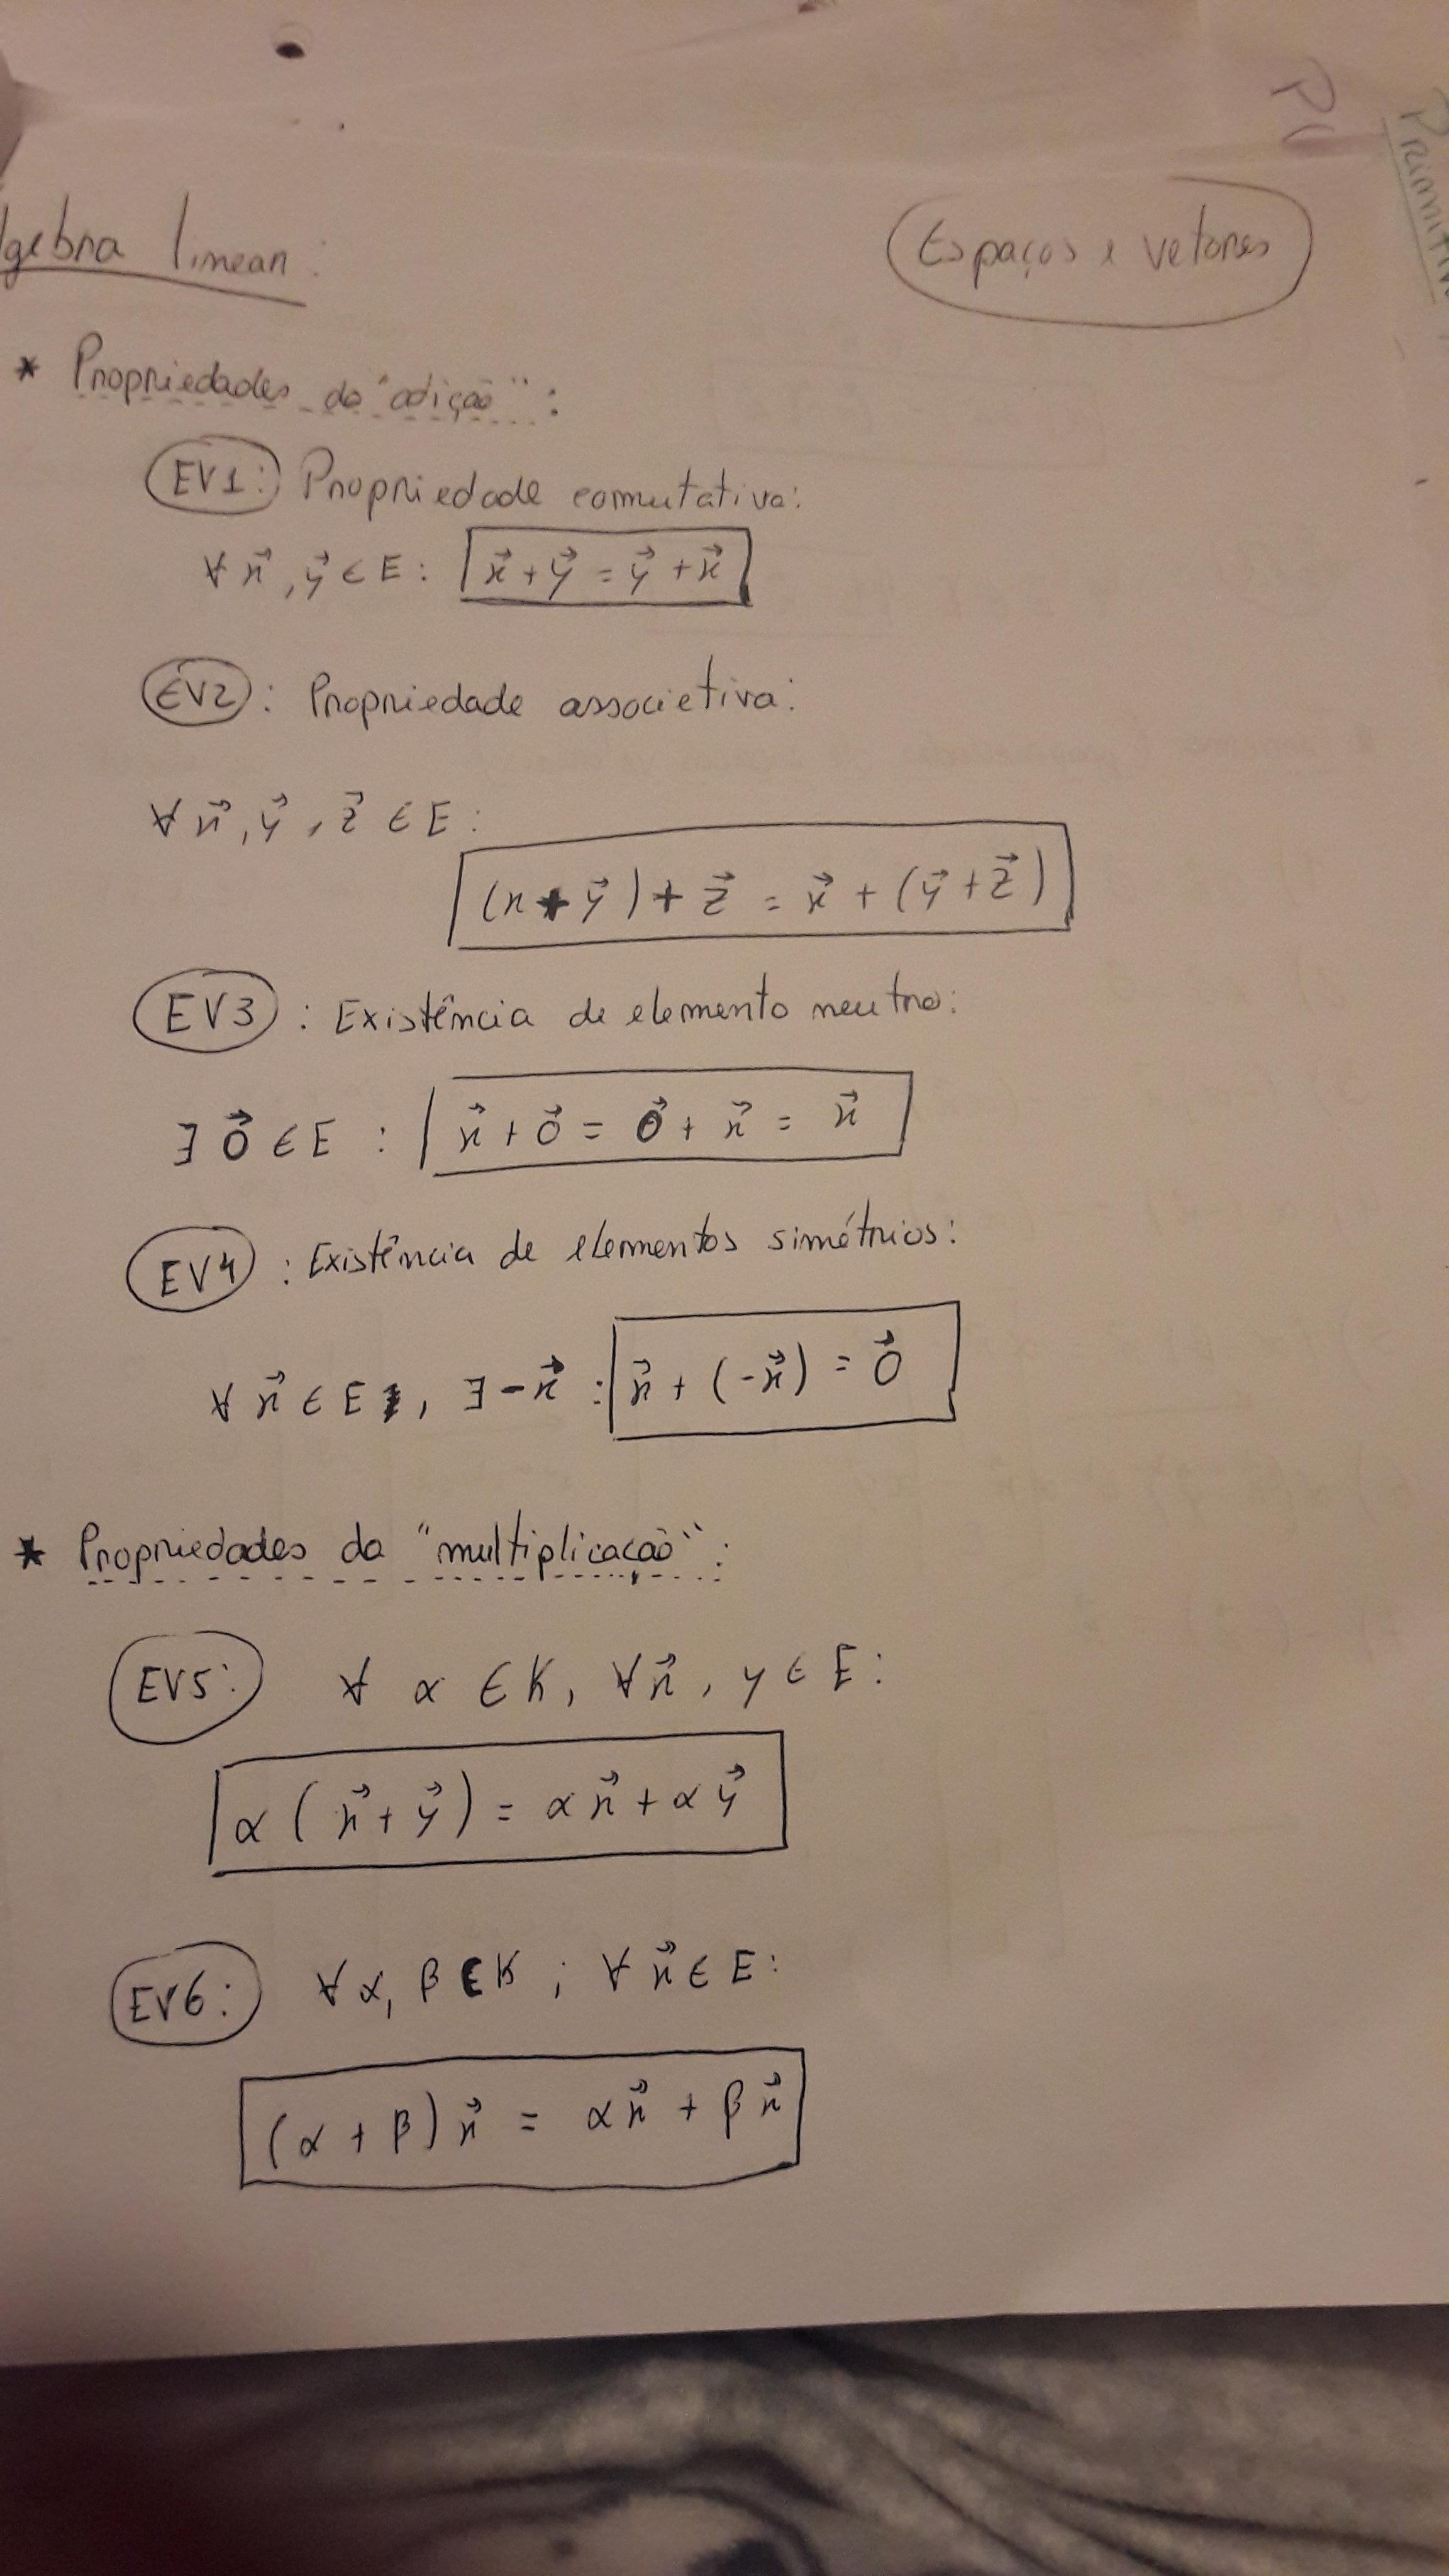 lgebra linear:
Espaços e vetores
* Propriedades da "adição":
EV1: Propriedade comutativa:
∀ x⃗, y⃗ ∈ E: x⃗ + y⃗ = y⃗ + x⃗
EV2: Propriedade associativa:
∀ x⃗, y⃗, z⃗ ∈ E:
(x + y⃗) + z⃗ = x⃗ + (y⃗ + z⃗)
EV3: Existência de elemento neutro:
∃ 0⃗ ∈ E : x⃗ + 0⃗ = 0⃗ + x⃗ = x⃗
EV4: Existência de elementos simétrios:
∀ x⃗ ∈ E, ∃ -x⃗ : x⃗ + (-x⃗) = 0⃗
* Propriedades da "multiplicação":
EV5: ∀ α ∈ K, ∀ x⃗, y ∈ E:
α (x⃗ + y⃗) = α x⃗ + α y⃗
EV6: ∀ α, β ∈ K ; ∀ x⃗ ∈ E:
(α + β) x⃗ = α x⃗ + β x⃗